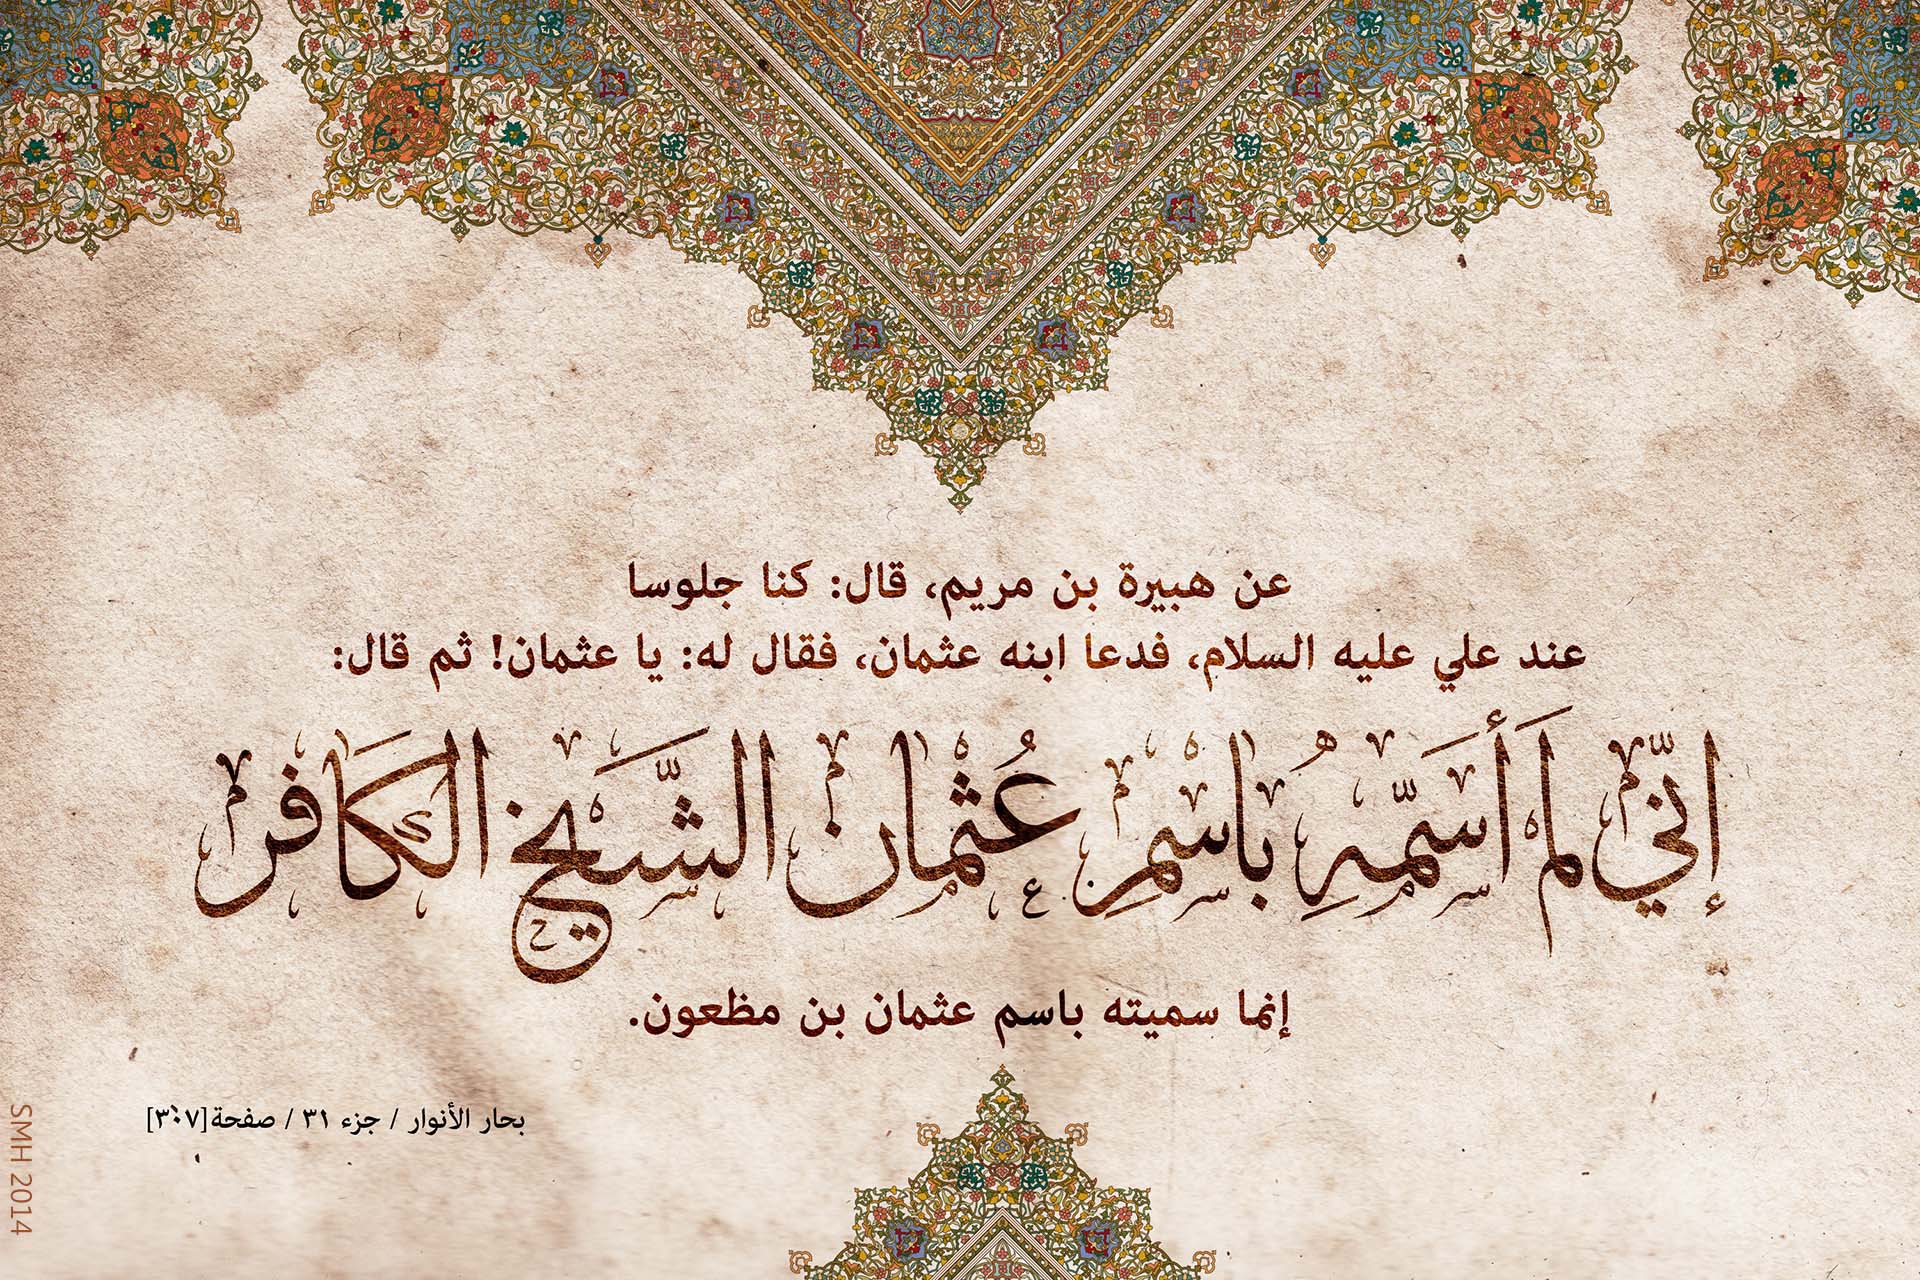 عن هبيرة بن مريم، قال: كنا جلوسا
عند علي عليه السلام، فدعا ابنه عثمان، فقال له: يا عثمان! ثم قال:
إنّي لَم أُسَمّهِ بِاسْمِ عُثْمان الشَّيْخ الكَافر
إنما سميته باسم عثمان بن مظعون.
بحار الأنوار / جزء ٣١ / صفحة[٣٠٧]
SMH 2014